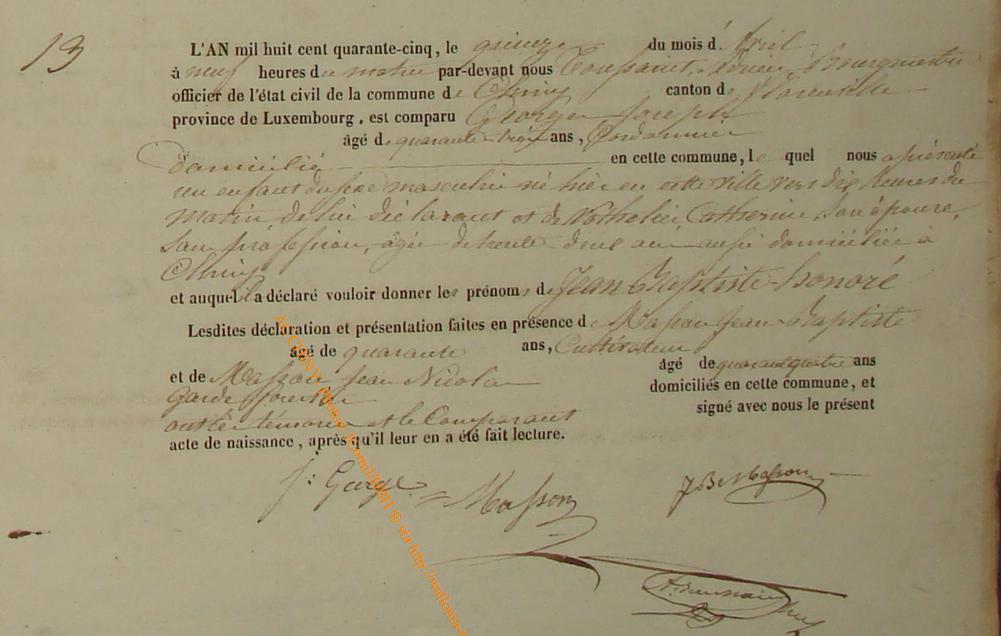 13
L'AN mil huit cent quarante-cinq, le quinze du mois d'Avril
à neuf heures du matin par-devant nous Toussaint, Bourgmestre
officier de l'état civil de la commune de Chiny canton de Florenville
province de Luxembourg, est comparu George Joseph
âgé de quarante trois ans, Cordonnier
domicilié en cette commune, lequel nous a présenté
un enfant du sexe masculin né hier en cette ville vers dix heures du
matin de lui déclarant et de Catherine, son épouse,
sans profession, âgée de trente deux ans aussi domiciliée à
Chiny
et auquel il a déclaré vouloir donner les prénoms de Jean Baptiste honoré
Lesdites déclaration et présentation faites en présence de Masson Jean Baptiste
âgé de quarante ans, Cultivateur
et de Masson Jean Nicolas âgé de quarante quatre ans
Garde forestier domiciliés en cette commune, et
ont les témoins et le Comparant signé avec nous le présent
acte de naissance, après qu'il leur en a été fait lecture.
J: George Masson J Bte Masson